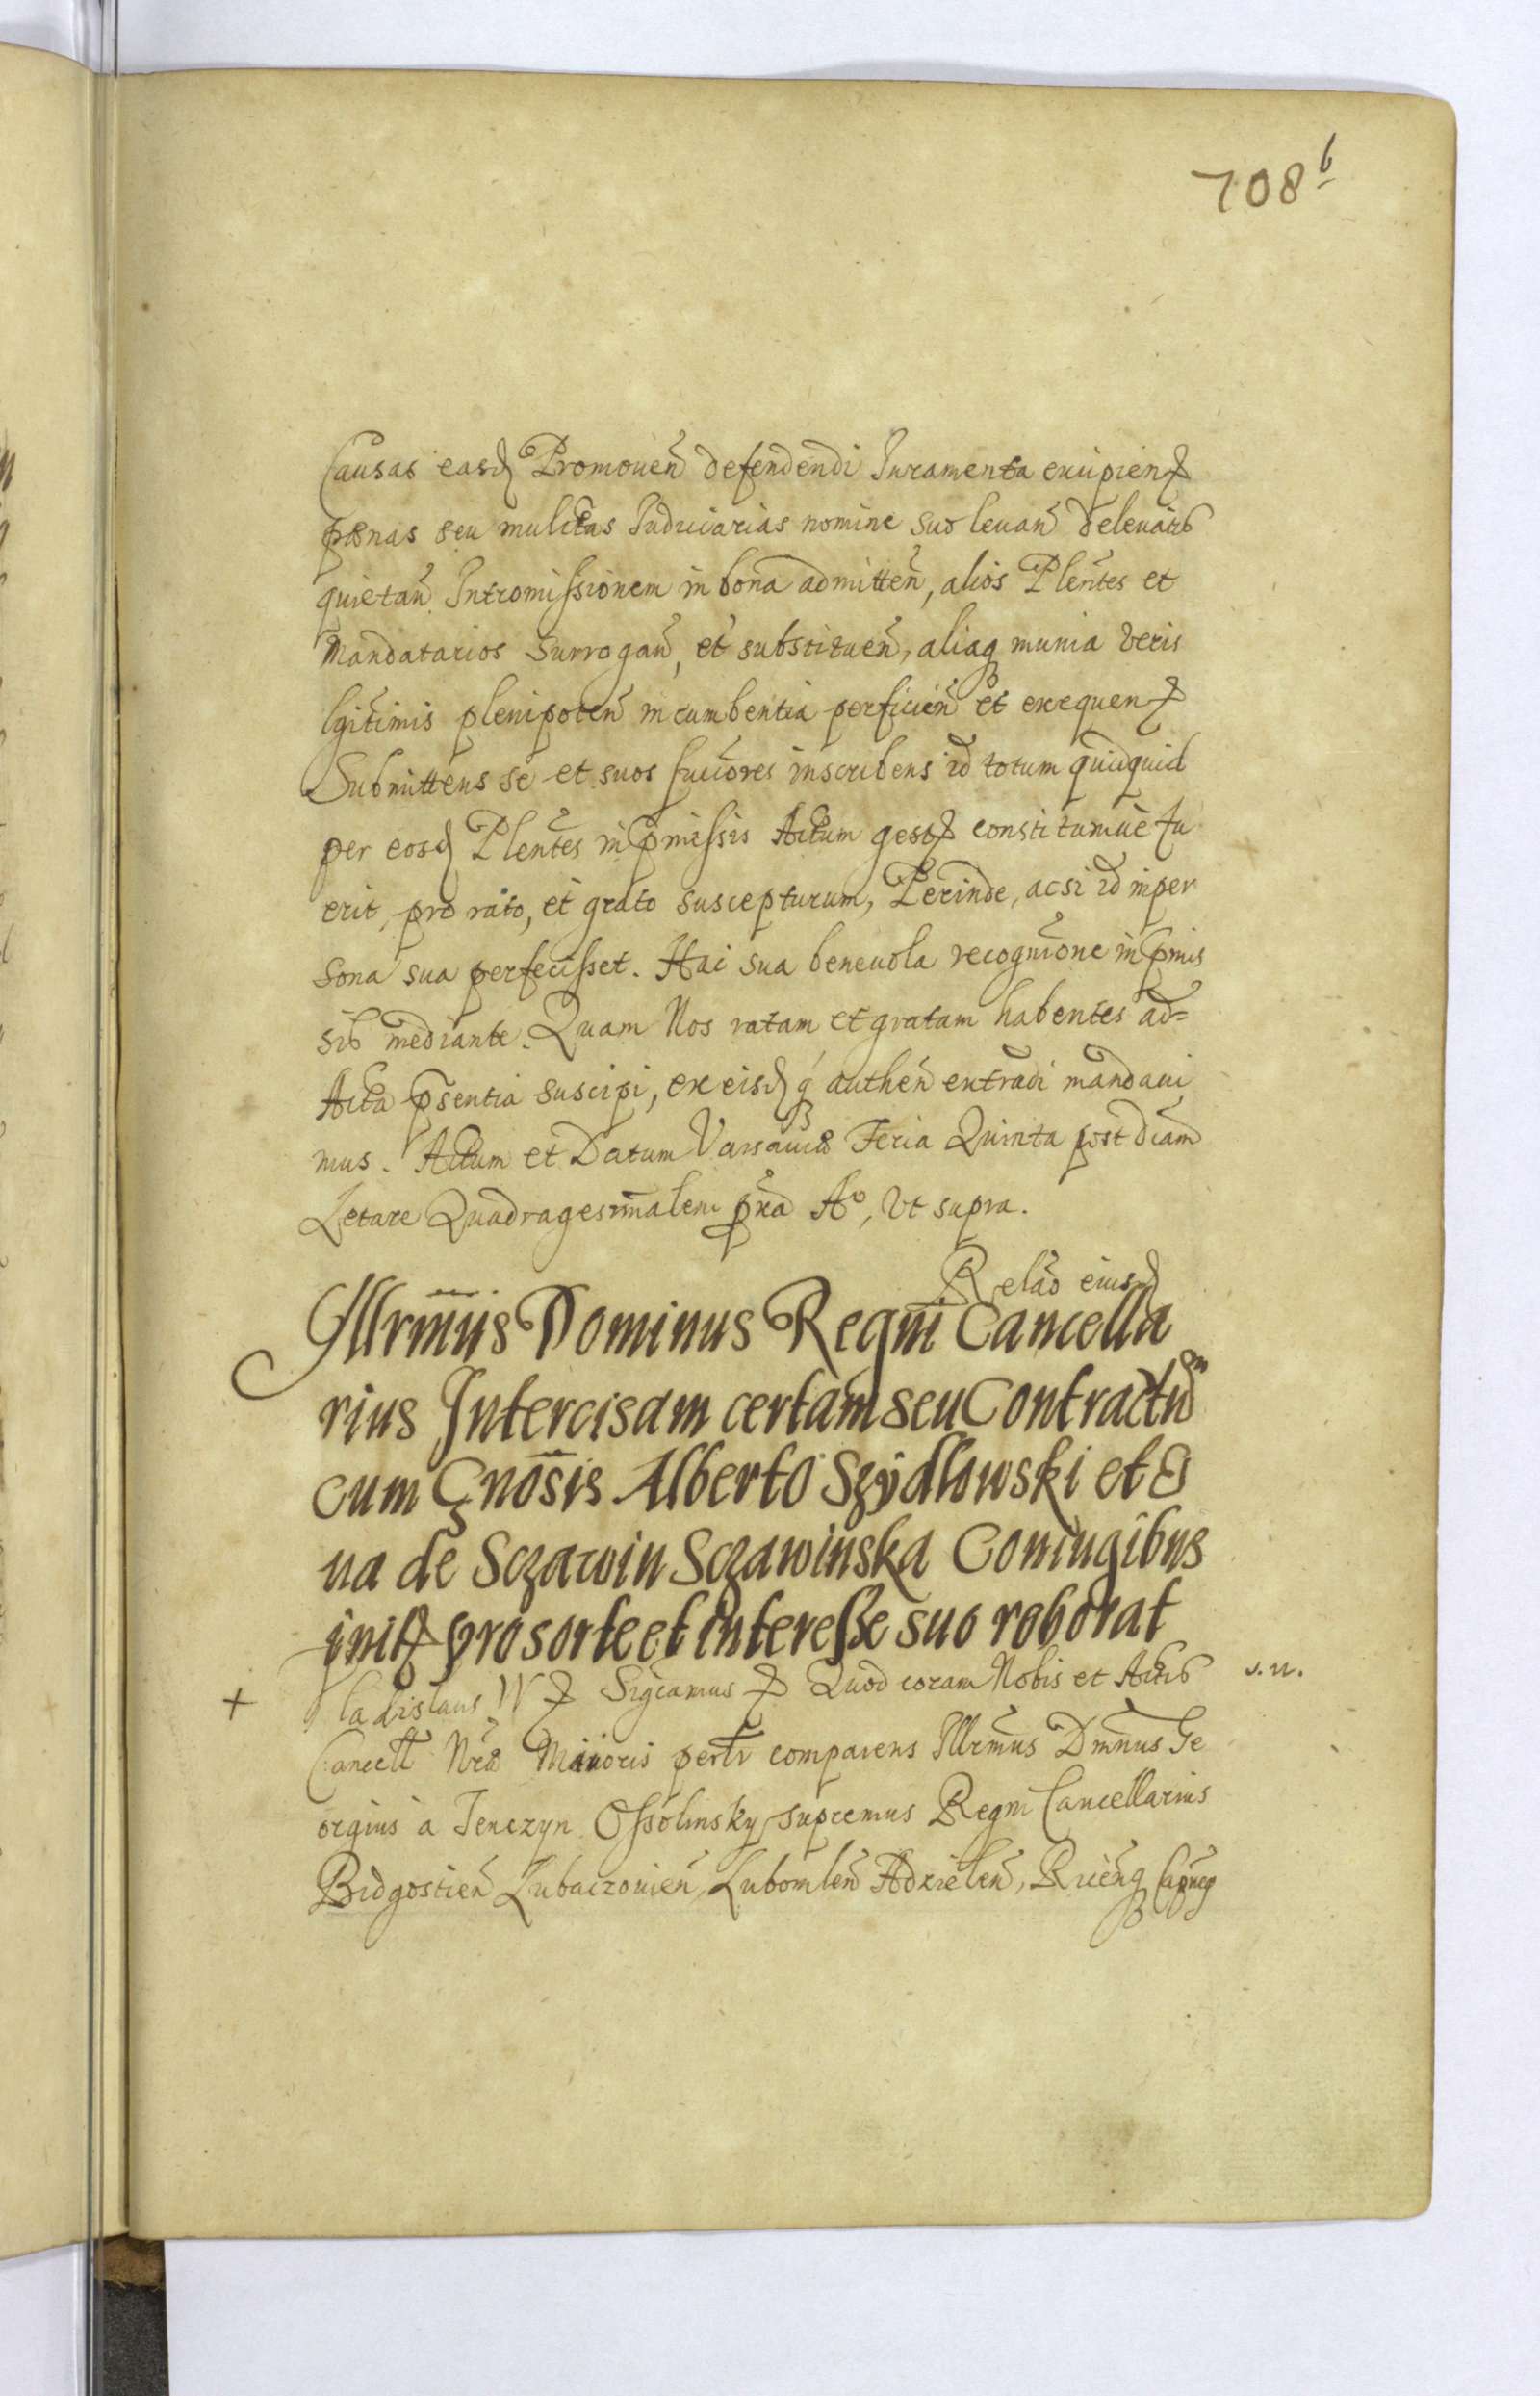 708 b
Causas easd Promouen defendendi Iuramenta excipien
pœnas seu mulctas Iudiciarias nomine suo leuan de leuatis
quietan Intromissionem in bona admitten, alios Plentes et
Mandatarios surrogan, et substituen, aliaq munia veris
lgitimis plenipoten incumbentia perficien et exequen
Submittens se et suos succores inscribens id totum quicquid
per eosd Plentes in pmissis Actum gest constitumue fu
erit, pro rato, et grato suscepturum, Perinde, acsi id in per
sona sua perfecisset. Hac sua beneuola recognitione in pmis
sis mediante. Quam Nos ratam et gratam habentes ad=
Acta psentia suscipi, ex eisdq authen extradi mandaui
mus. Actum et Datum Varsauiæ Feria Quinta post Dcam
Letare Quadragesimalem pxa Aº, Vt supra.
Relao eiusd
Illrmus Dominus Regni Cancella
rius Intercisam certam seu Contractum
cum Gnosis Alberto Szÿdlowski et E
ua de Sczawin Sczawinska Coniugibus
init pro sorte et interesse suo roborat
+ ladislaus IV Sigcamus Quod coram Nobis et Actis s. n.
Cancell Nræ Maioris perlr comparens Illrmus Dmnus Ge
orgius à Tenczyn Ossolinsky supremus Regni Cancellarius
Bidgostien Lubaczouien, Lubomlen Adzielen, Ricenq Capneq